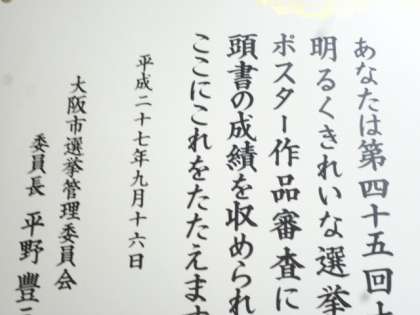 あなたは第四十五回
明るくきれいな選挙
ポスター作品審査に
頭書の成績を収められ
ここにこれをたたえます
平成二十七年九月十六日
大阪市選挙管理委員会
委員長 平野豐